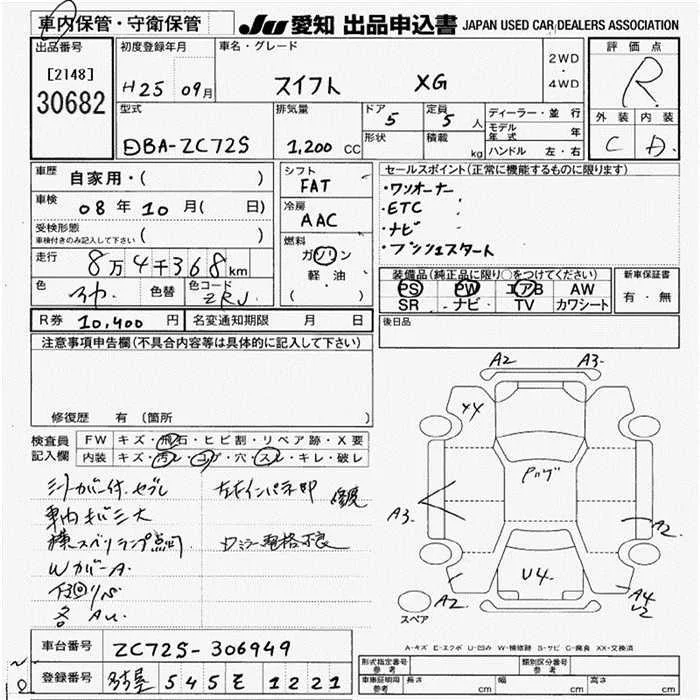 車内保管・守衛保管
JU 愛知 出品申込書 JAPAN USED CAR DEALERS ASSOCIATION
出品番号
[2148]
30682
初度登録年月
H25 09月
車名・グレード
スイフト XG
2WD
・
4WD
評価点
R
外装 内装
C D
型式
DBA-ZC72S
排気量
1,200 CC
ドア
5
形状
定員
5 人
積載
kg
ディーラー・並行
モデル年式 年
ハンドル 左・右
車歴
自家用・( )
車検
08年10月( 日)
受検形態
車検付きのみ記入して下さい ( )
走行
8万4千368km
色
色替
色コード
ZRJ
シフト
FAT
冷房
AAC
燃料
ガソリン
軽油
( )
セールスポイント(正常に機能するものに限ります)
・ワンオーナー
・ETC
・ナビ
・プッシュスタート
装備品(純正品に限り○をつけてください)
PS PW エアB AW
SR ナビ TV カワシート
新車保証書
有・無
R券 10,400 円
名変通知期限 月 日
後日品
注意事項申告欄(不具合内容等は具体的に記入して下さい)
修復歴 有 (箇所
検査員
記入欄
FW キズ・飛石・ヒビ割・リペア跡・X要
内装 キズ・汚レ・コゲ・穴・スレ・キレ・破レ
車内キバミ大
WカバーA
各AU
A2 A3
A3
A2
U4
A2
A4
U2
スペア
A-キズ E-エクボ U-凹み W-補修跡 S-サビ C-腐食 XX-交換済
車台番号 ZC72S-306949
登録番号 545 1221
形式指定番号
参考
類別区分番号
参考
車庫証明
参考
長さ cm
幅 cm
高さ cm